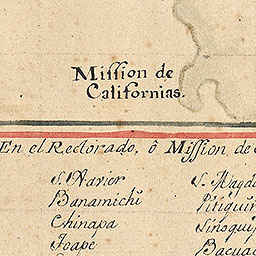 Miſſion de
Californias.
En el Rectorado, ô Miſſion, de
S. Xavier
Banamichi
Chinapa
Joape
S. Magda
Pitiqui
Sinoqui
Bacua